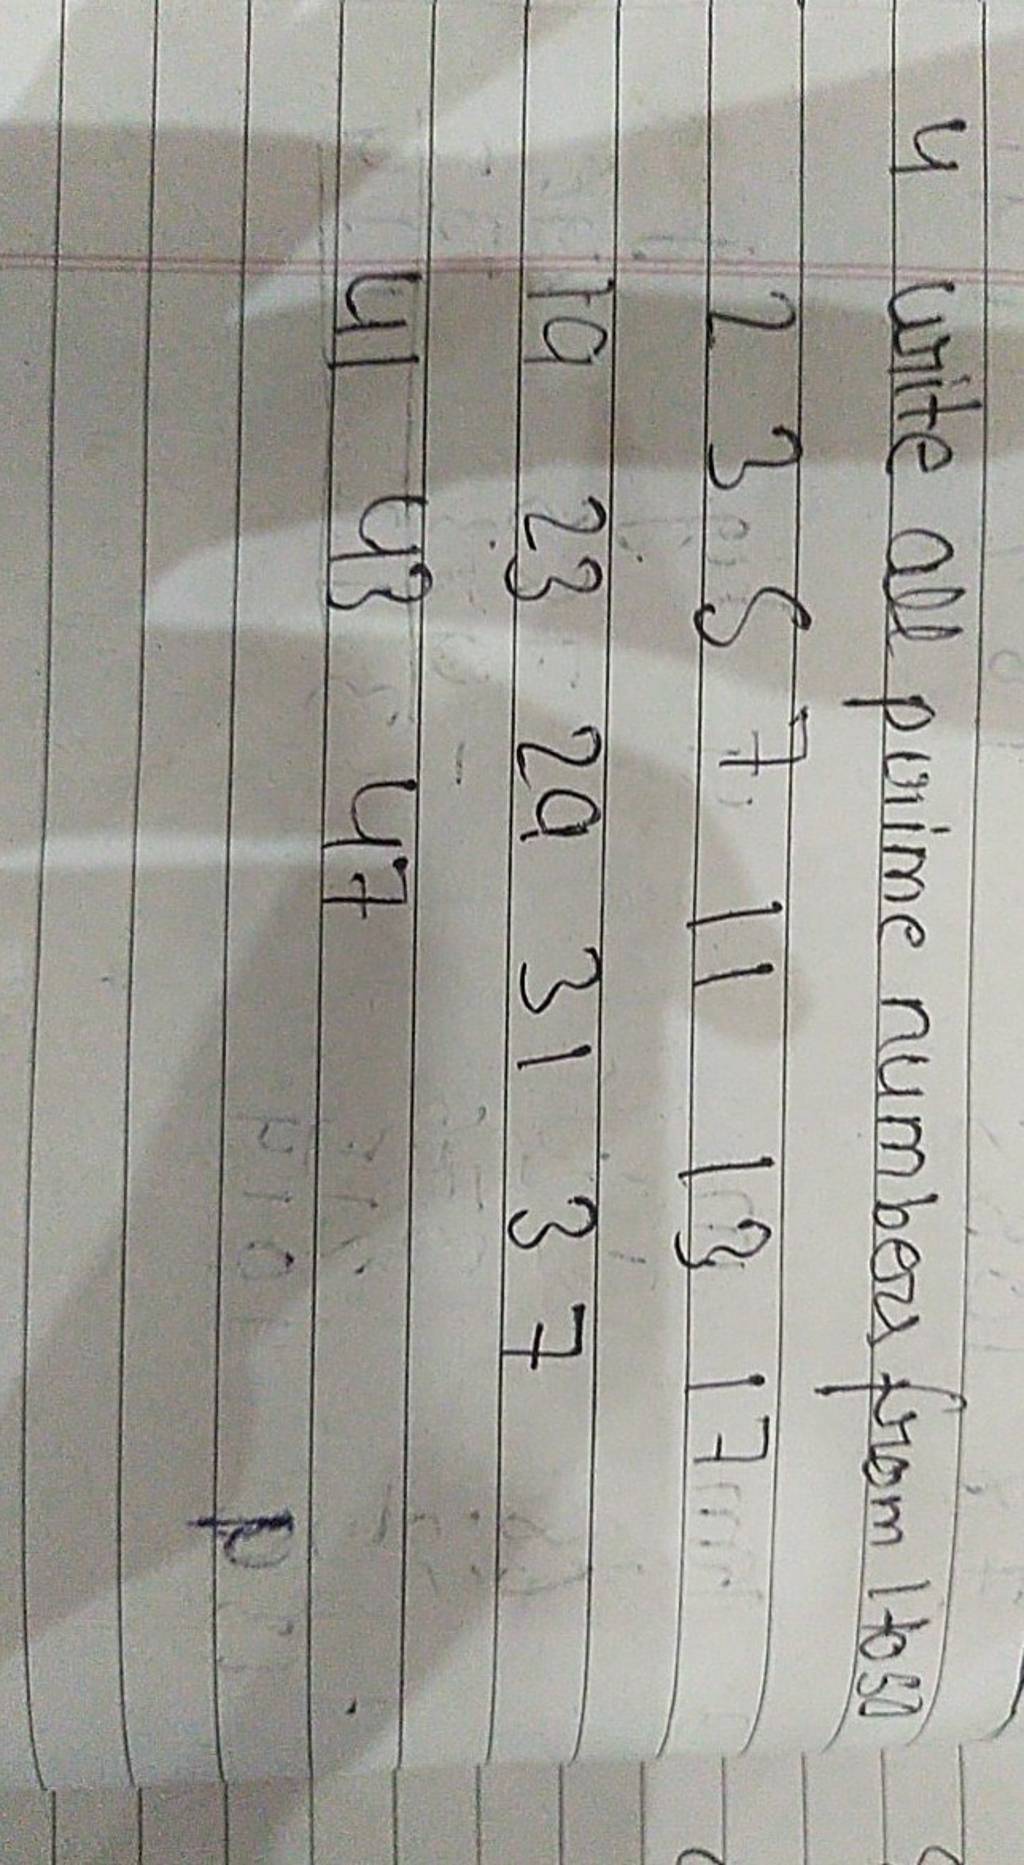 4 write all prime numbers from 1 to 50
2 3 5 7 11 13 17
19 23 29 31 37
41 43 47